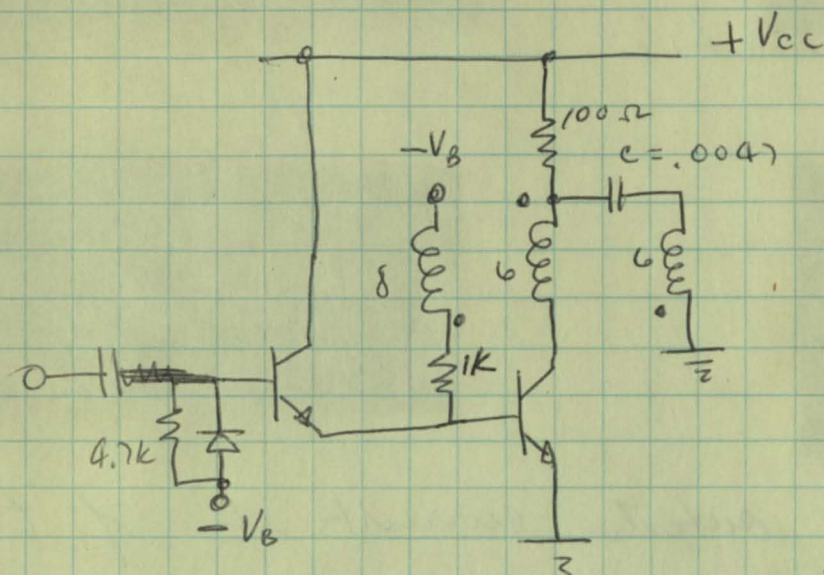 + Vcc
100 Ω
-VB
C = .0047
8
6
6
1K
4.7K
- VB